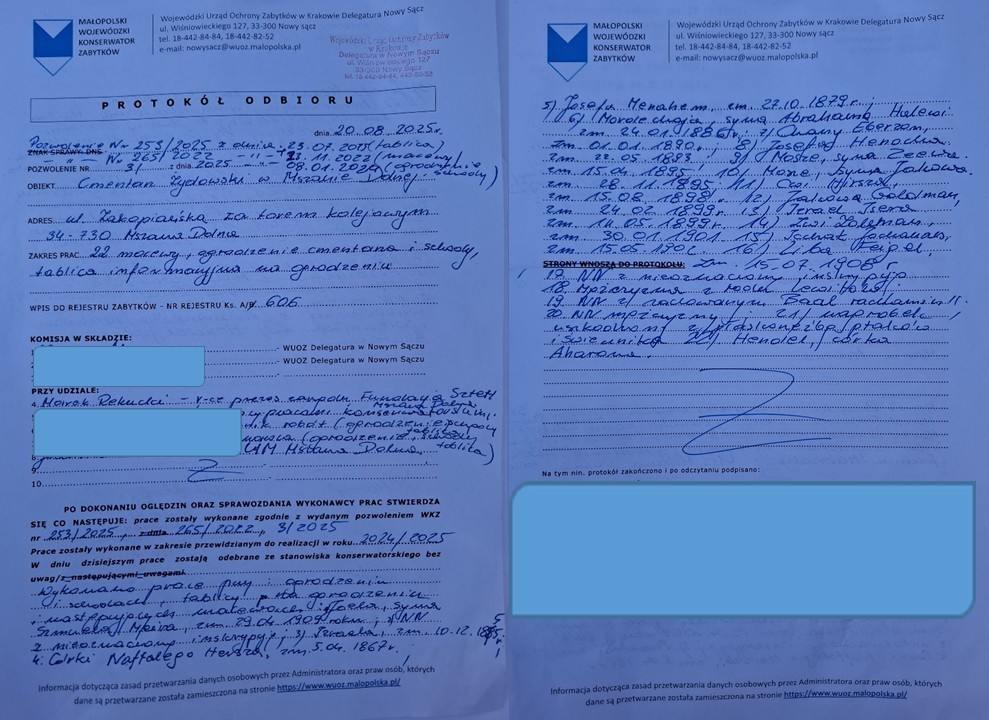 MAŁOPOLSKI
WOJEWÓDZKI
KONSERWATOR
ZABYTKÓW
Wojewódzki Urząd Ochrony Zabytków w Krakowie Delegatura Nowy Sącz
ul. Wiśniowieckiego 127, 33-300 Nowy Sącz
tel. 18-442-84-84, 18-442-82-52
e-mail: nowysacz@wuoz.malopolska.pl
Wojewódzki Urząd Ochrony Zabytków
w Krakowie
Delegatura w Nowym Sączu
ul. Wiśniowieckiego 127
33-300 Nowy Sącz
PROTOKÓŁ ODBIORU
dnia 20.08.2025r.
Pozwolenie Nr 253/2025 z dnia 23.07.2025 (tablica)
ZNAK SPRAWY: DNS
Nr 265/2022 13.11.2022 (macewy)
POZWOLENIE NR 3/ z dnia 2025 (ogrodzenie schody)
OBIEKT Cmentarz Żydowski w Mszanie Dolnej
ADRES ul. Zakopiańska za torem kolejowym
34-730 Mszana Dolna
ZAKRES PRAC 22 macewy, ogrodzenie cmentarza i schody,
tablica informacyjna na ogrodzeniu
WPIS DO REJESTRU ZABYTKÓW – NR REJESTRU Ks. A/ 606
KOMISJA W SKŁADZIE:
1 - WUOZ Delegatura w Nowym Sączu
- WUOZ Delegatura w Nowym Sączu
PRZY UDZIALE:
4. Marek Rekucki – v-ce prezes zarządu Fundacja Sztetl
Mszana Dolna
robót (ogrodzenie
tablica
(ogrodzenie, schody
Mszana Dolna tablica)
9.
10.
PO DOKONANIU OGLĘDZIN ORAZ SPRAWOZDANIA WYKONAWCY PRAC STWIERDZA
SIĘ CO NASTĘPUJE: prace zostały wykonane zgodnie z wydanym pozwoleniem WKZ
nr 253/2025, z dnia 265/2022, 3/2025
Prace zostały wykonane w zakresie przewidzianym do realizacji w roku 2024/2025
W dniu dzisiejszym prace zostają odebrane ze stanowiska konserwatorskiego bez
uwag/z następującymi uwagami
Wykonano prace przy ogrodzeniu
i schodach, tablicy na ogrodzeniu
i następujących macewach: syna
Szmuela Meira, zm. 29.04.1909 roku, 2) NN
z nieoznaczoną inskrypcją, 3) Izraela, zm. 10.12.
4. Córki Naftalego Hersza, zm. 5.04.1867r.
Informacja dotycząca zasad przetwarzania danych osobowych przez Administratora oraz praw osób, których
dane są przetwarzane została zamieszczona na stronie https://www.wuoz.malopolska.pl/
MAŁOPOLSKI
WOJEWÓDZKI
KONSERWATOR
ZABYTKÓW
Wojewódzki Urząd Ochrony Zabytków w Krakowie Delegatura Nowy Sącz
ul. Wiśniowieckiego 127, 33-300 Nowy Sącz
tel. 18-442-84-84, 18-442-82-52
e-mail: nowysacz@wuoz.malopolska.pl
5) Josefa Menahem, zm. 27.10.1879r.,
6) syna Abrahama Halewi
zm. 24.01. 7)
zm. 01.01.1890r., 8) Josefa Henocha
zm. 22.05.1893 9) Mosze, syna Zeewa
zm. 15.04.1895, 10) syna Jakowa
zm. 28.11.1895, 11) Hirsza,
zm. 15.08.1898 12) Jakowa Goldman,
zm. 24.02.1899r. 13) Izrael
zm. 14.05.1899r. 14)
zm. 30.01.1901. 15)
zm. 15.05. 16) Liba Feigel,
STRONY WNOSZĄ DO PROTOKOŁU: zm. 15.07.1908r
17. NN z nieoznaczoną inskrypcją
18. Mężczyzna z rodu lewitów
19. NN z zachowanym
20. NN mężczyzny; 21) nagrobek
uszkodzony z
i świecznika 22) Hendel, córka
Aharona.
Na tym nin. protokół zakończono i po odczytaniu podpisano:
Informacja dotycząca zasad przetwarzania danych osobowych przez Administratora oraz praw osób, których
dane są przetwarzane została zamieszczona na stronie https://www.wuoz.malopolska.pl/